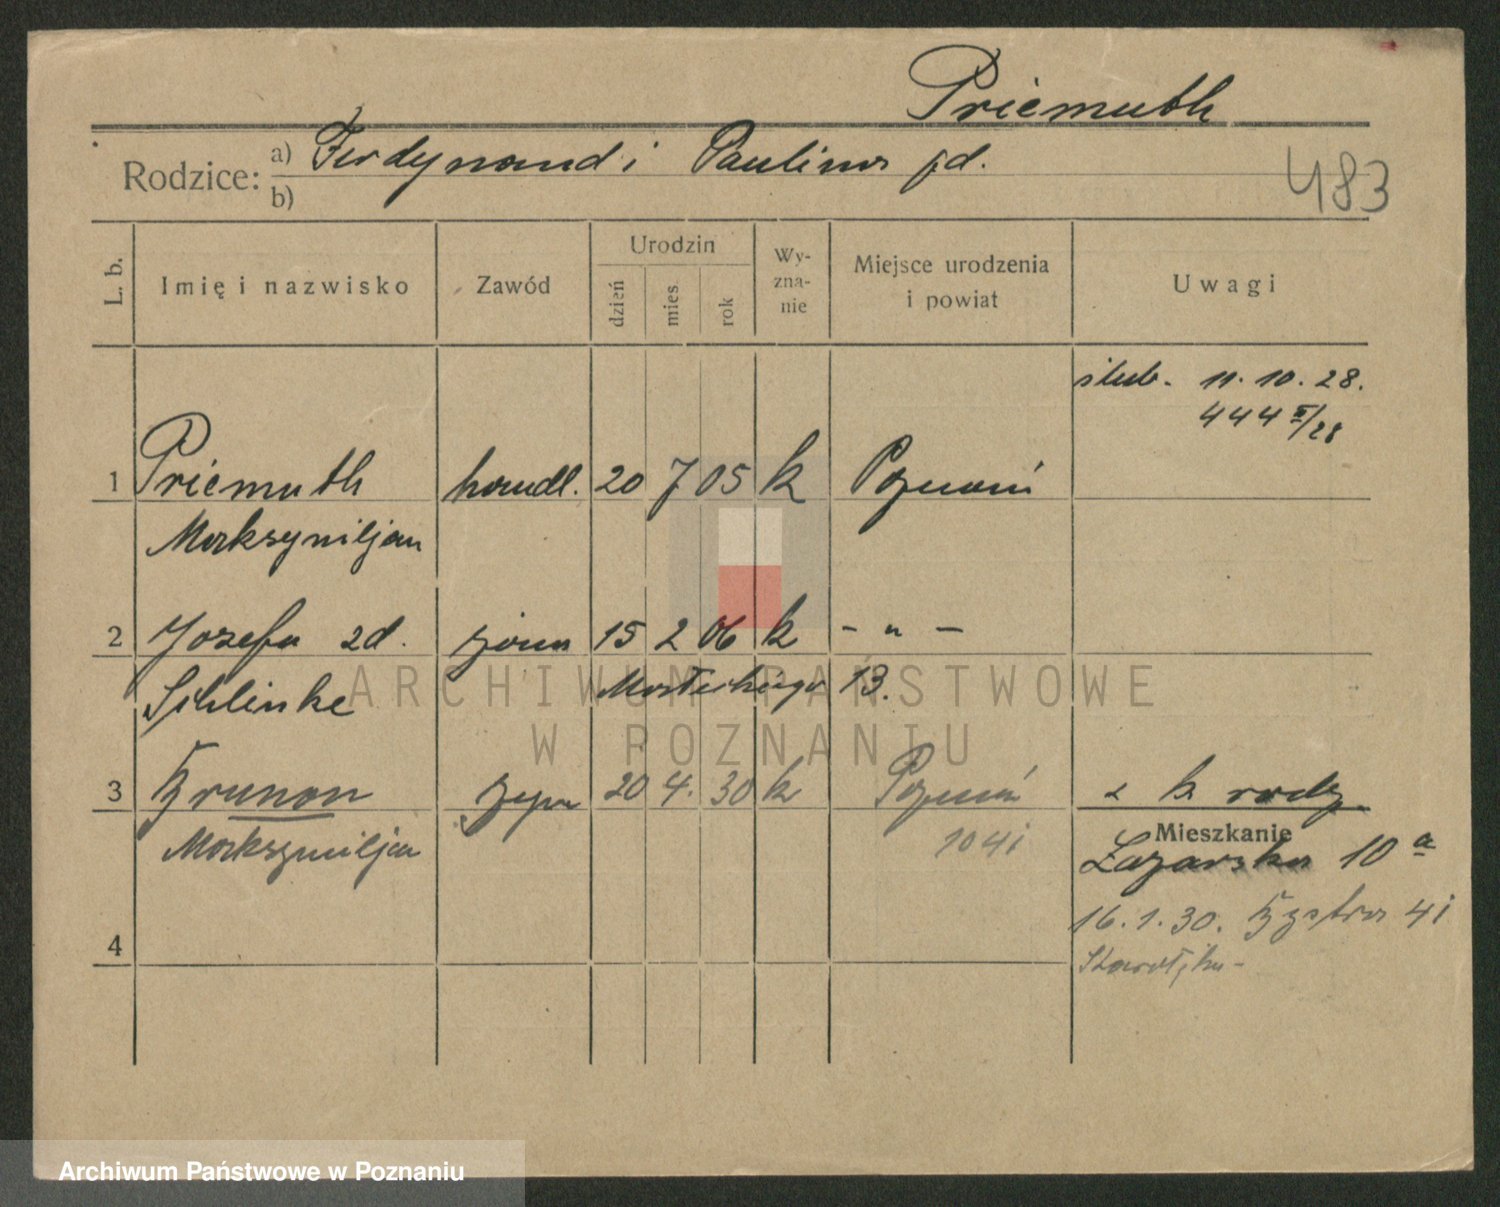 Priemuth
Rodzice: a) Ferdynand i Paulina jd.
b)
483
L. b. Imię i nazwisko Zawód Urodzin dzień mies. rok Wyznanie Miejsce urodzenia i powiat Uwagi
ślub. 11. 10. 28.
444 /28
1 Priemuth handl. 20 7 05 k Poznań
Maksymiljan
2 Józefa zd. żona 15 2 06 k - " -
Schlinke 13.
3 Brunon 20 4. 30 k Poznań k rodz.
Maksymiljan
Mieszkanie
Łazarska 10 a
16. 1. 30. Bystra 4
4
ARCHIWUM PAŃSTWOWE
W POZNANIU
Archiwum Państwowe w Poznaniu